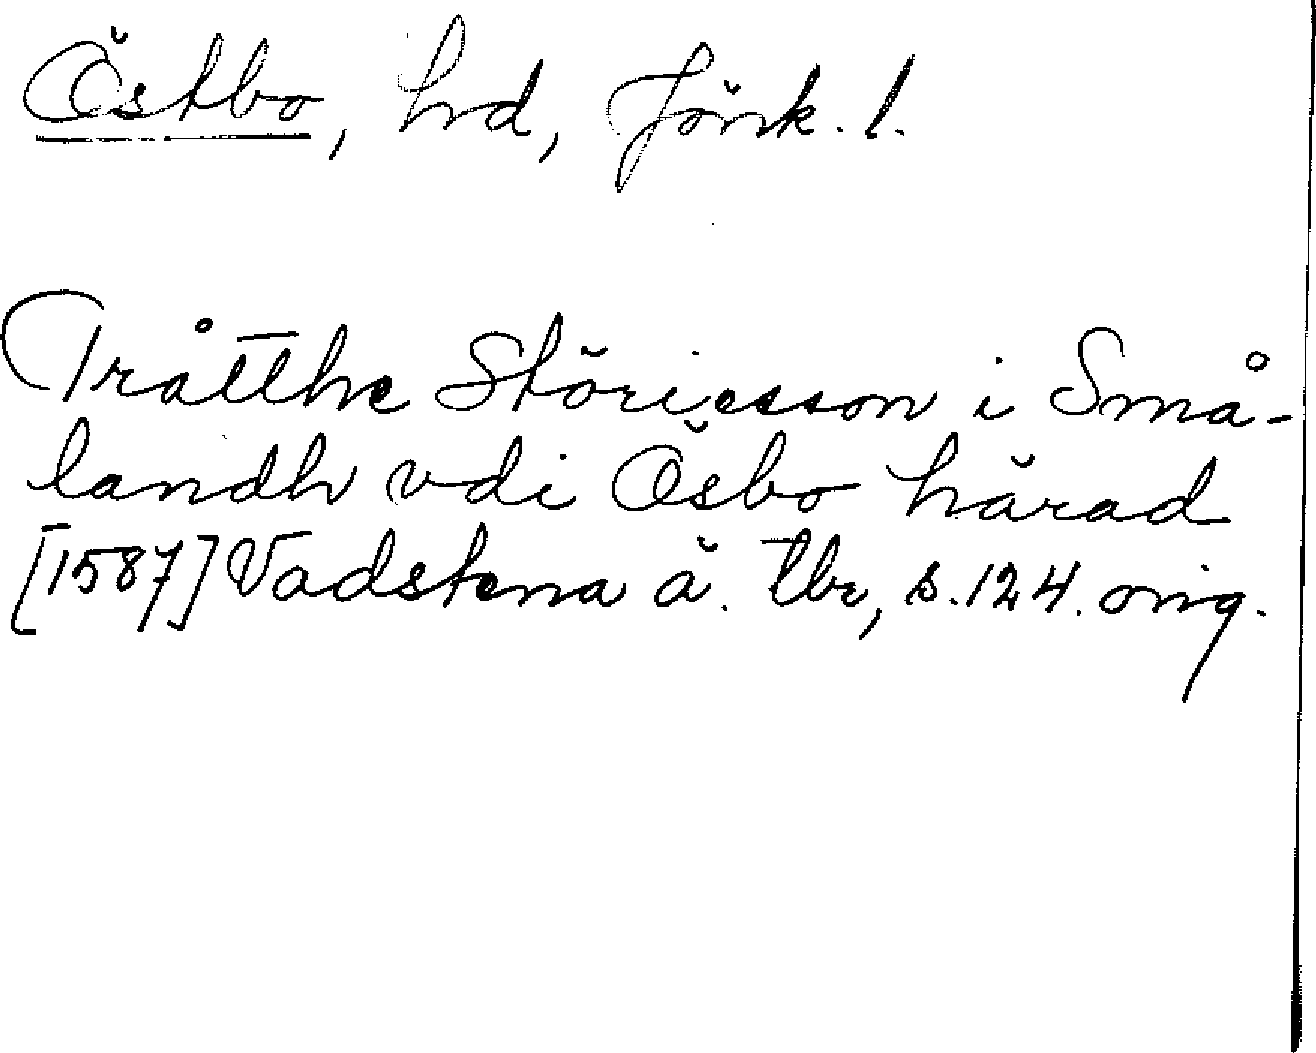 Östbo, hrd, Jönk. l.
Tråtthe Störiesson i Små-
landh vdi Ösbo härad
[1587] Vadstena ä. tbr, s. 124. orig.